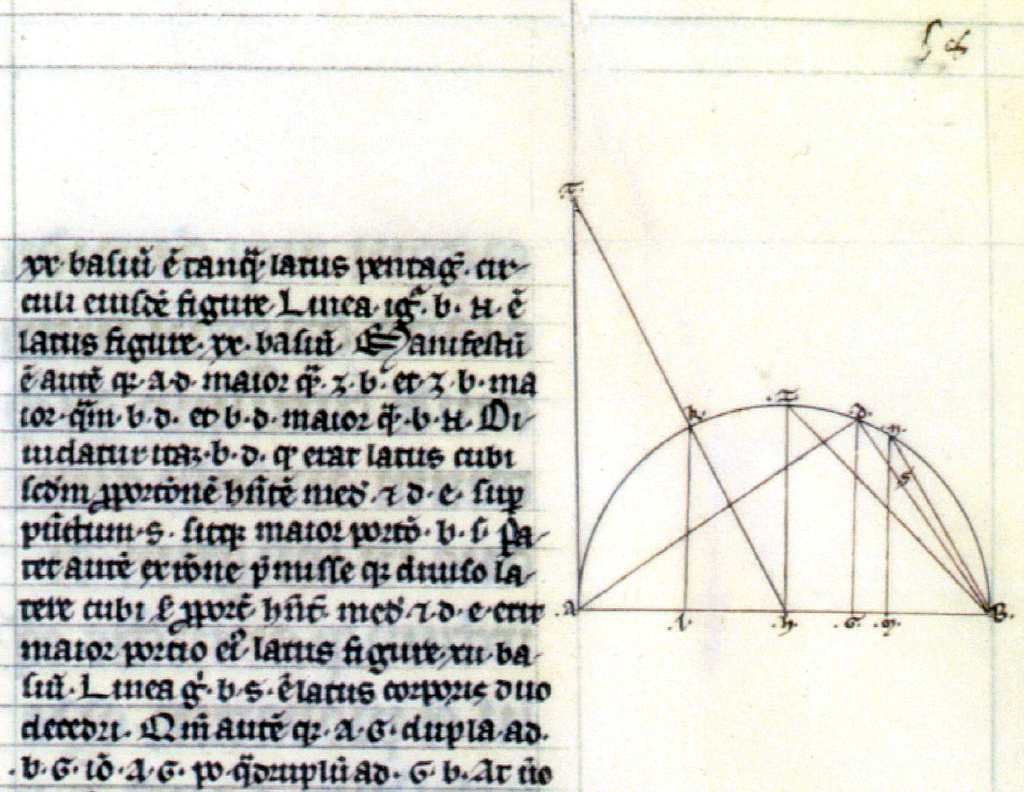 xx· basiū ē tanq̄ latus pentaḡ· cir-
culi eiusdē figure Linea ·igᵃ· b· н· ē
latus figure· xx· basiū· Manifestū
ē autē qꝛ ·a·d· maior q̄· z· b· et z· b· ma
ior q̄m b· d· et b· d· maior q̄· b· н· Di
uidatur itaꝫ· b· d· qͥ erat latus cubi
scd̄m ꝓportōnē hn̄tē med̄· ⁊ d· e· suꝑ
pūctum· s· sitqꝫ maior portō· b· s· Pa-
tet autē ex rōne p̄misse qꝛ diuiso la-
tere cubi ſ ꝓport̄ hn̄t̄ med̄ ·⁊·d·e·erit
maior portio eiꝰ latus figure xii ba-
siū· Linea gͥ· b· s· ē latus corporis duo
decedri· Qm̄ autē qꝛ· A· G· dupla ad·
·b·G· iō· A·G· po· q̄druplū ad· G· b· At ūo
T·
K·
·Z·
·D·
·n·
s
·A
·l·
·h·
·G·
·B·